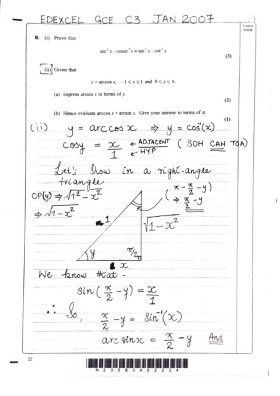 EDEXCEL GCE C3 JAN 2007
Leave
blank
8. (i) Prove that
sec² x – cosec² x ≡ tan² x – cot² x.
(3)
(ii) Given that
y = arccos x, –1 ≤ x ≤ 1 and 0 ≤ y ≤ π,
(a) express arcsin x in terms of y.
(2)
(b) Hence evaluate arccos x + arcsin x. Give your answer in terms of π.
(1)
(ii) y = arccos x ⇒ y = cos⁻¹(x)
cos y = x/1 ← ADJACENT ← HYP (SOH CAH TOA)
Let's show in a right-angle
triangle
OP(y) ⇒ √1² – x²
⇒ √1 – x²
(π – π/2 – y)
⇒ π/2 – y
1
√1 – x²
y
π/2
x
We know that -
sin(π/2 – y) = x/1
∴ So, π/2 – y = sin⁻¹(x)
arc sin x = π/2 – y Ans
22